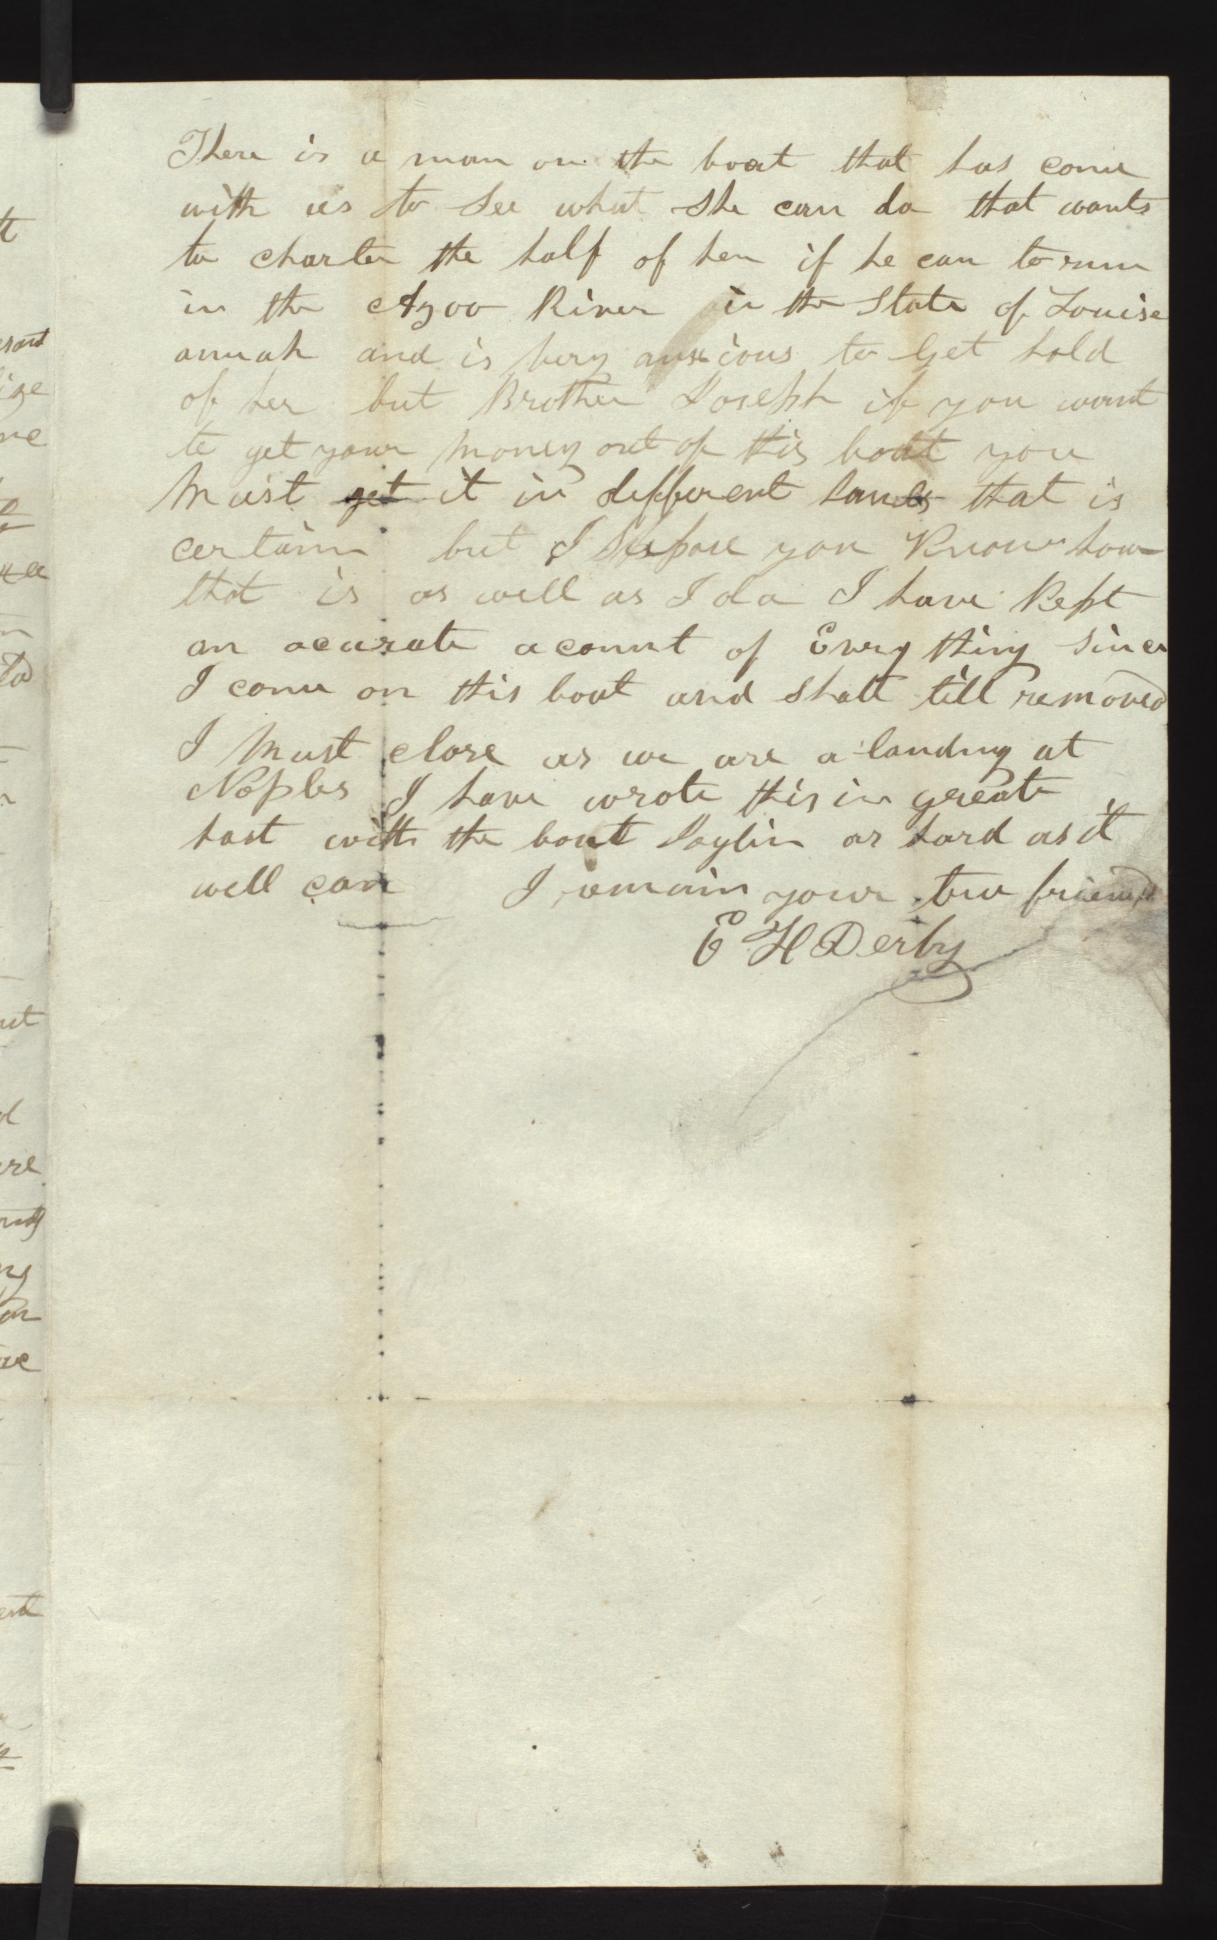 There is a man on the boat that has come
with us to see what she can do that wants
to charter the half of her if he can to run
in the Azoo River in the State of Louise
annah and is very anxious to get hold
of her but Brother Joseph if you want
to get your money out of this boat you
Must get it in different hands that is
certain but I Suspose you Know how
that is as well as I do I have Kept
an acurate acount of Every thing since
I come on this boat and shall till removed
I Must close as we are a landing at
Noples I have wrote this in greate
hast with the boat as hard as it
well can I remain your true friend
E H Derby